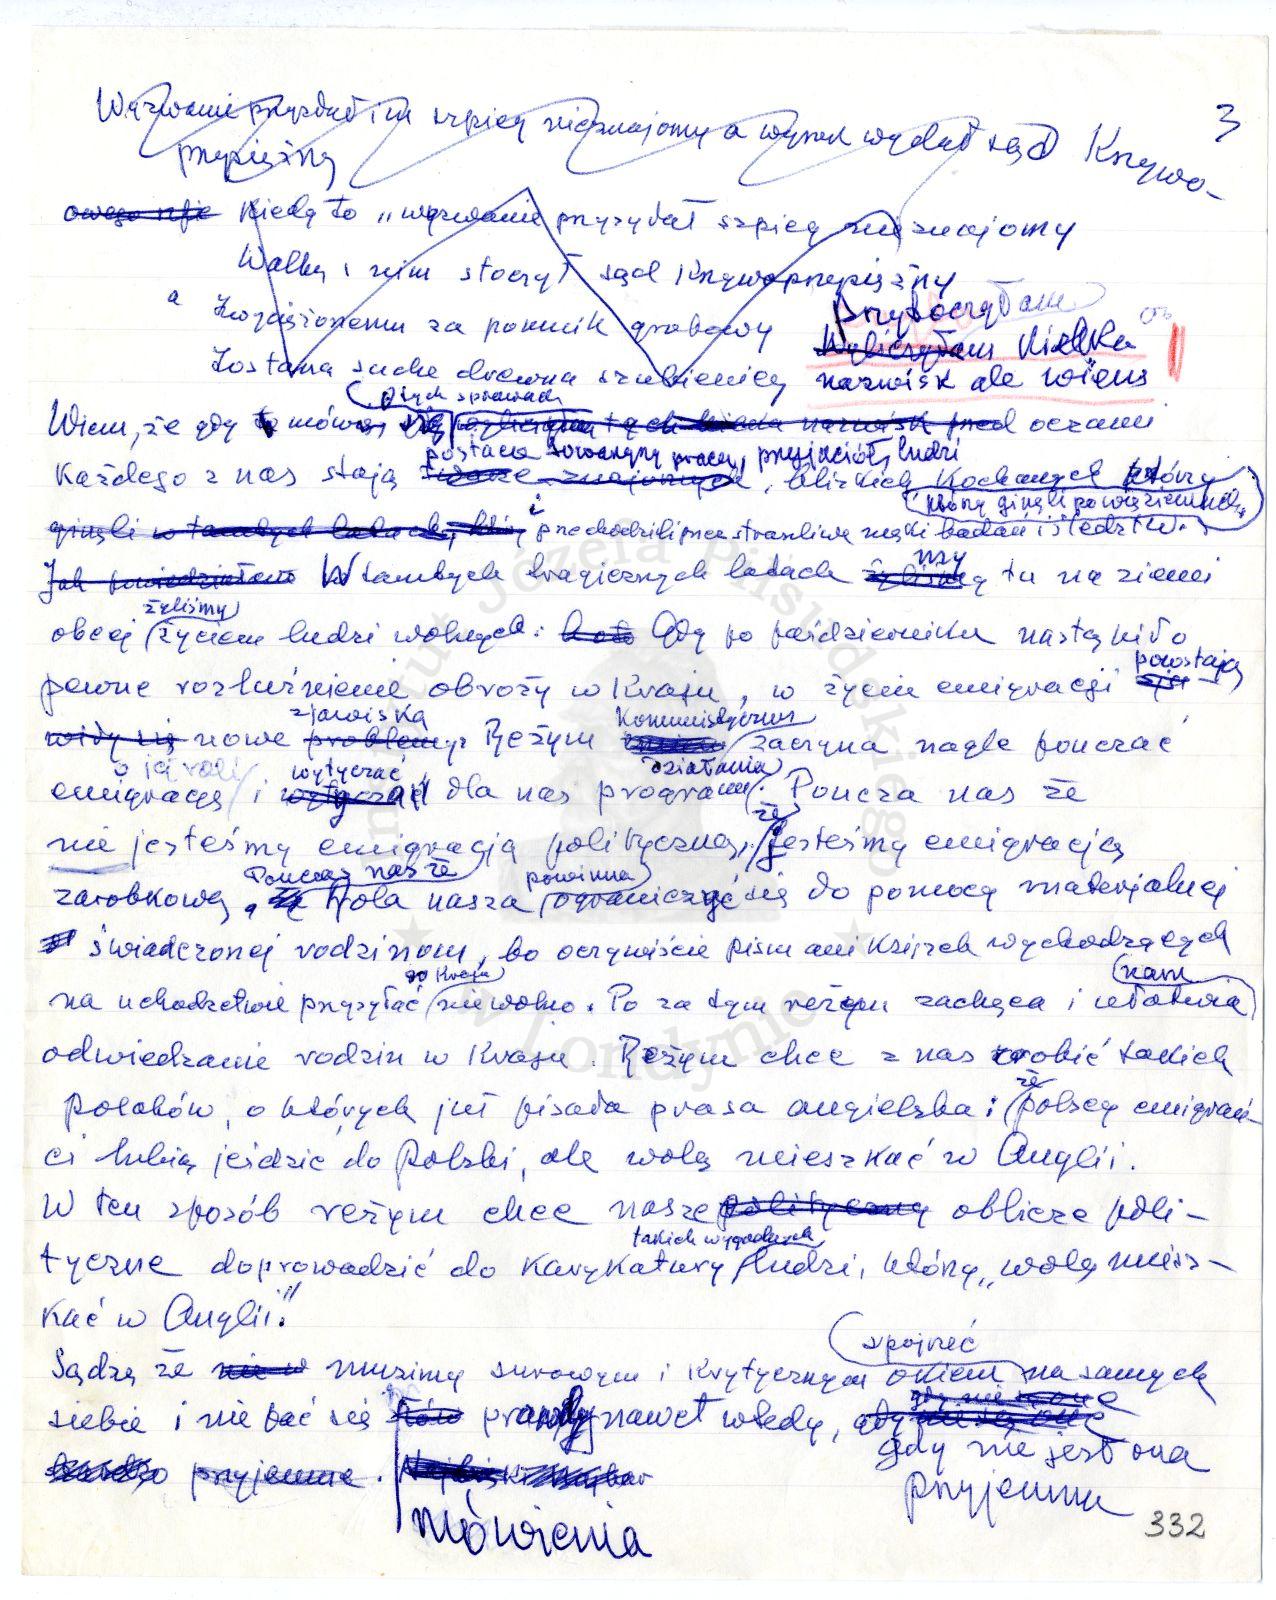 3
Wyzwanie przysłał im szpieg nieznajomy a wyrok wydał sąd Krzywo-
przysiężny
Kiedy to „wyzwanie przysłał szpieg nieznajomy
Walkę z nim stoczył sąd Krzywoprzysiężny
a Zwyciężonemu za pomnik grobowy
Zostaną suche drewna szubienicy
przytoczyłam
wyliczyłam kilka
nazwisk ale wiem
o tych sprawach
Wiem, że gdy mówię, się wyliczyłam tych kilka nazwisk przed oczami
postacie towarzyszy pracy, przyjaciół, ludzi
każdego z nas stają twarze znajomych, bliskich kochanych którzy
którzy ginęli po więzieniach
ginęli w tamtych latach, i przechodzili przez straszliwe męki badań i śledztw.
Jak powiedziałam W tamtych tragicznych latach żyliśmy my tu na ziemi
żyliśmy
obcej życiem ludzi wolnych. Gdy po październiku nastąpiło
pewne rozluźnienie obroży w Kraju, w życiu emigracji powstają
zjawiska komunistyczny
widzy się nowe problemy. Reżym zaczyna nagle pouczać
o jej roli wytyczać działania
emigrację i wytyczać dla nas program. Poucza nas że
że
nie jesteśmy emigracją polityczną, jesteśmy emigracją
Poucza nas że powinna
zarobkową, że Rola nasza ograniczyć się do pomocy materjalnej
świadczonej rodzinom, bo oczywiście pism ani książek wychodzących
do Kraju nam
na uchodźctwie przysyłać nie wolno. Po za tym reżym zachęca i ułatwia
odwiedzanie rodzin w Kraju. Reżym chce z nas zrobić takich
że
Polaków, o których już pisała prasa angielska: polscy emigran-
ci lubią jeździć do Polski, ale wolą mieszkać w Anglii.
W ten sposób reżym chce nasze polityczną oblicze poli-
takich wygodnych
tyczne doprowadzić do karykatury ludzi, którzy „wolą miesz-
kać w Anglii."
spojrzeć
Sądzę że nie w musimy surowym i krytycznym okiem na samych
siebie i nie bać się słów prawdy nawet wtedy, gdy nie są one
gdy nie jest ona
przyjemna
bardzo przyjemne.
mówienia
332
Instytut Józefa Piłsudskiego w Londynie